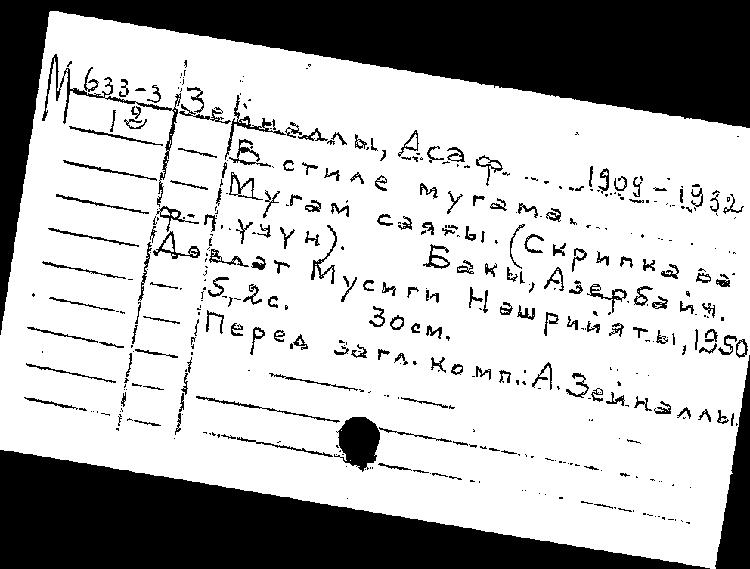 М 633-3
19
Зейналлы, Асаф .... 1909-1932
В стиле мугама...
Мугам саяғы. (Скрипка вә
ф-п. үчүн). Бакы, Азербайҹ.
Дөвләт Мусиги Нәшрийяты, 1950
5, 2с. 30см.
Перед загл. комп.: А. Зейналлы